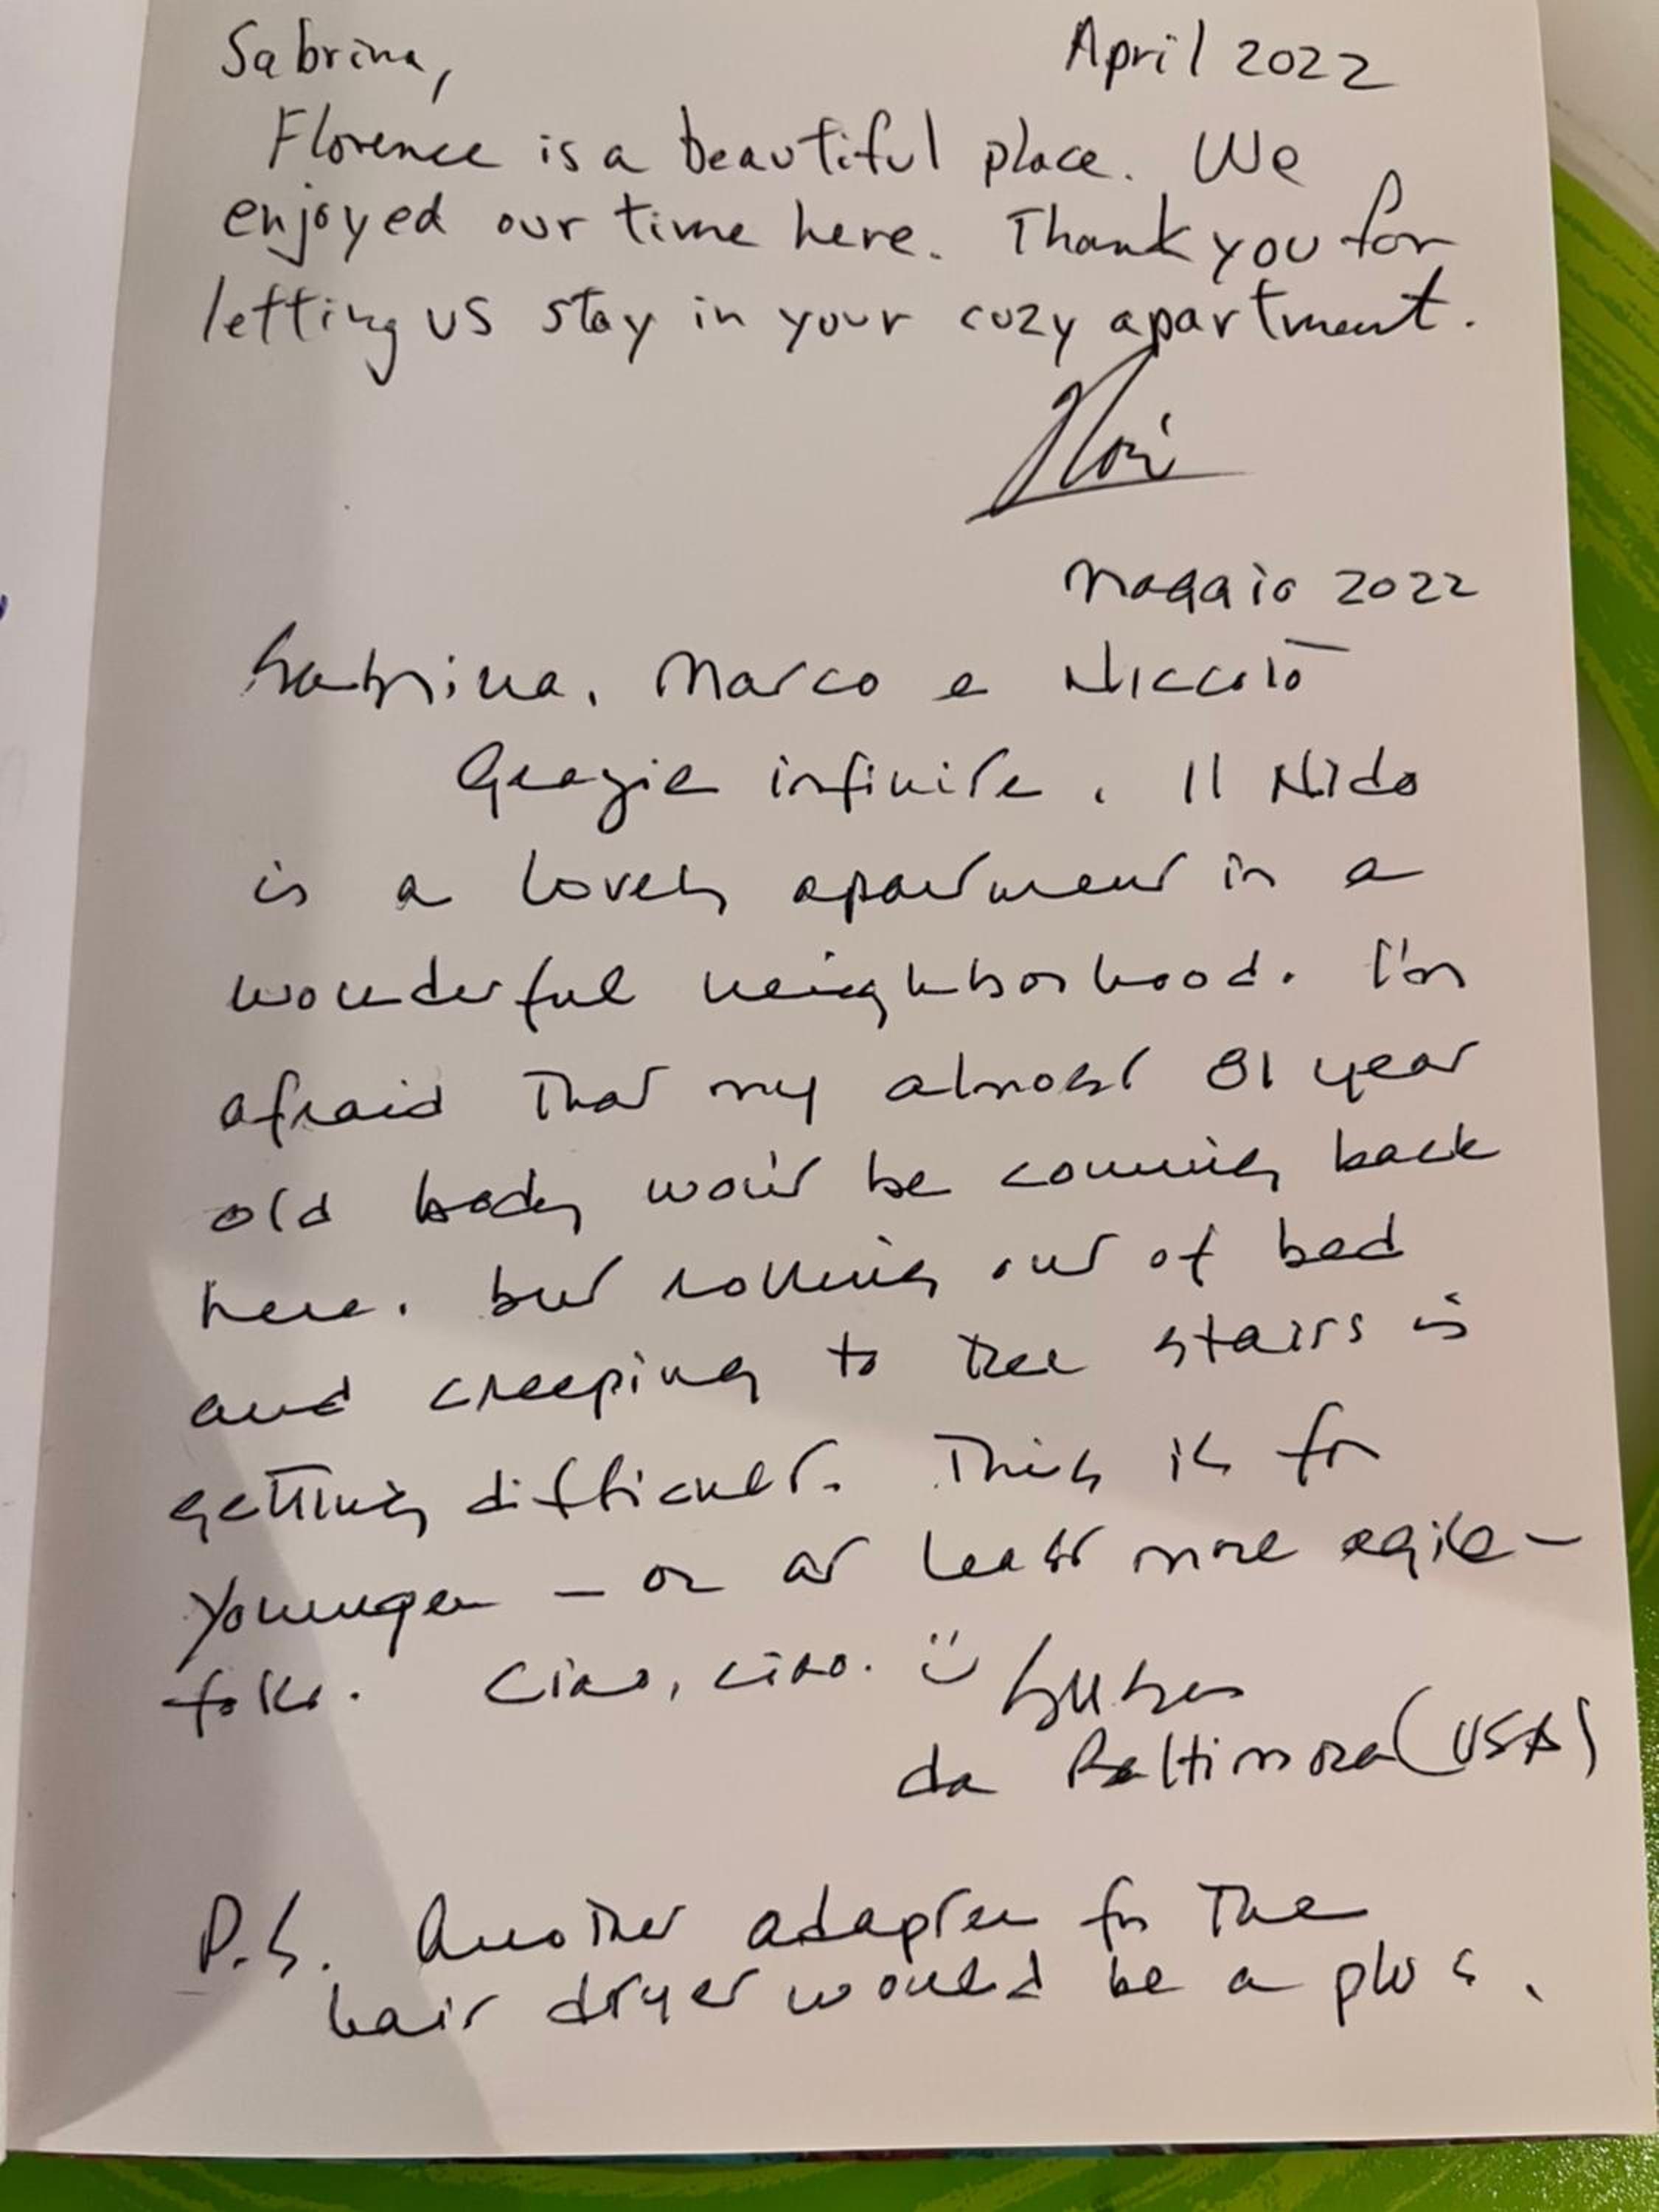 Sabrina, April 2022
Florence is a beautiful place. We
enjoyed our time here. Thank you for
letting us stay in your cozy apartment.
Maggio 2022
Sabrina, Marco e Niccolò
Grazie infinite. Il Nido
is a lovely apartment in a
wonderful neighborhood. I'm
afraid that my almost 81 year
old body won't be coming back
here. but rolling out of bed
and creeping to the stairs is
getting difficult. This is for
younger – or at least more agile –
folks. Ciao, ciao. :)
da Baltimora (USA)
P.S. Another adapter for the
hair dryer would be a plus.